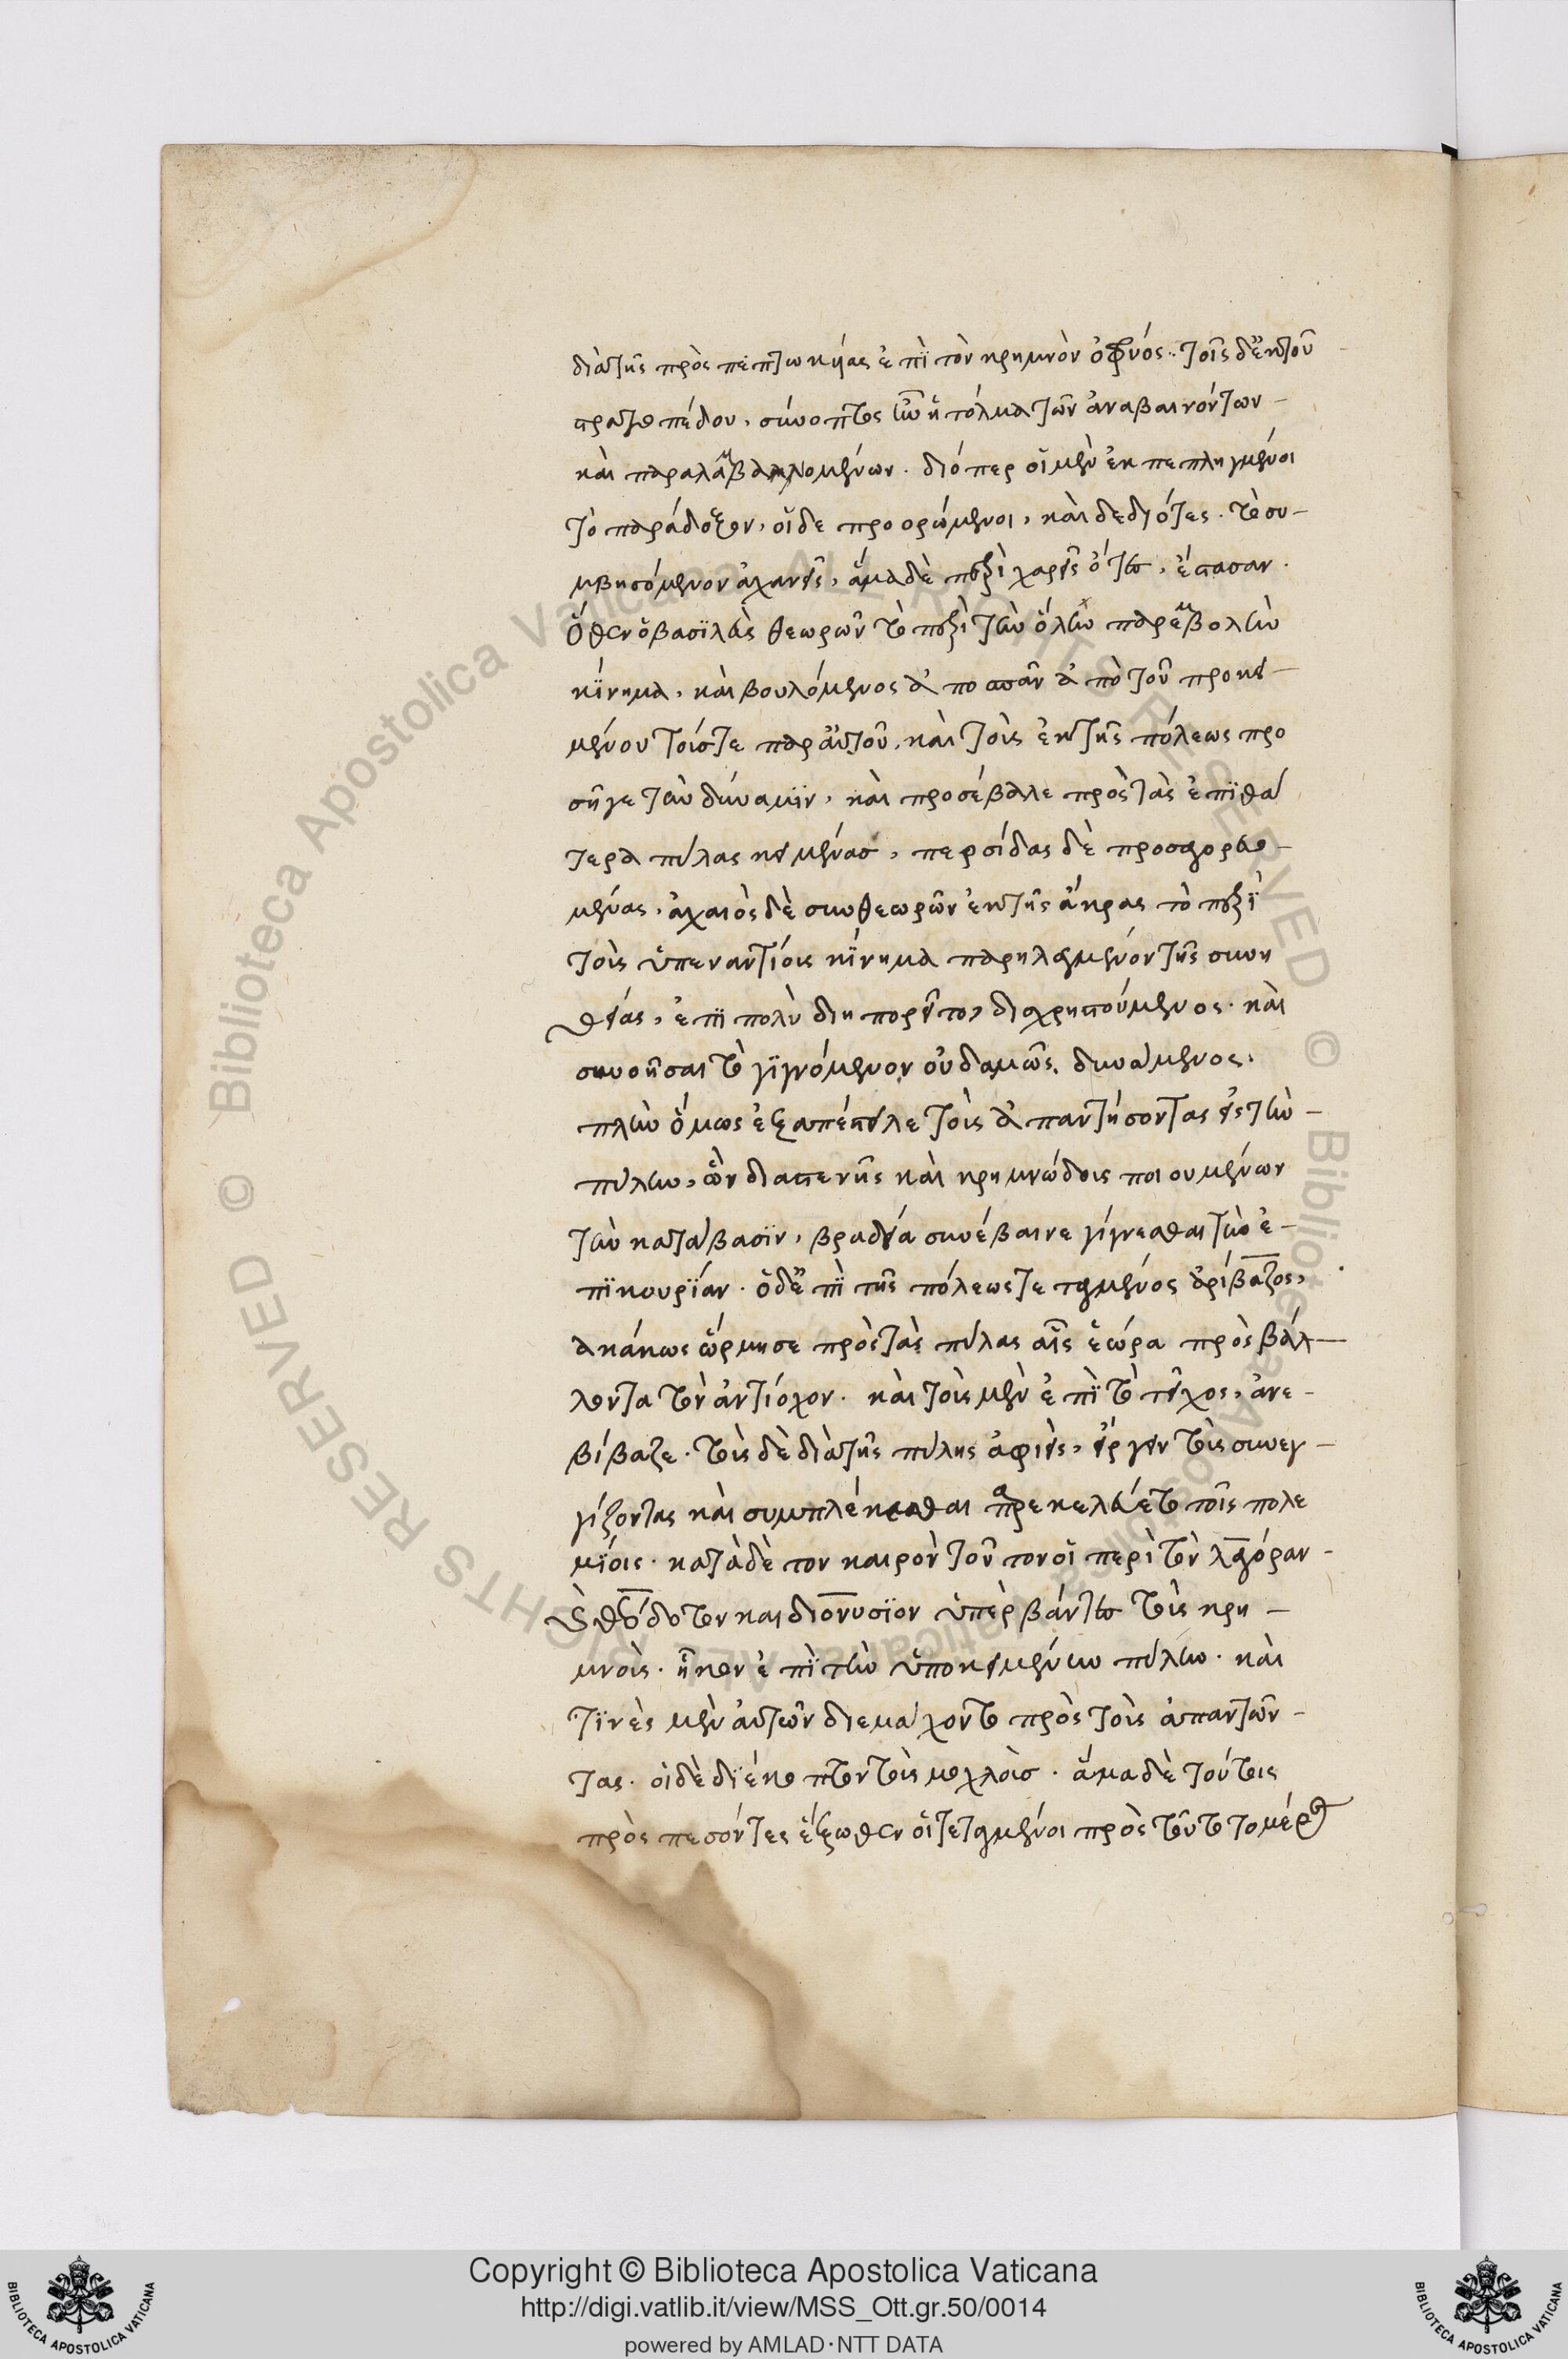 διὰ τῆς πρὸς πεπτωκυίας ἐπὶ τὸν κρημνὸν ὀφρύος· τοῖς δ' ἐκ τοῦ
στρατοπέδου, σύνοπτος ἦν ἡ τόλμα τῶν ἀναβαινόντων –
καὶ παραλαμβανομένων. διόπερ οἱ μὲν ἐκπεπληγμένοι
τὸ παράδοξον, οἱ δε προορώμενοι, καὶ δεδιότες. τὸ συ –
μβησόμενον ἀχανεῖς, ἅμα δὲ περὶ χαρεῖς ὄντες, ἕστασαν.
Ὅθεν ὁ βασϊλεὺς θεωρῶν τὸ περὶ τὴν ὅλην παρεμβολὴν
κίνημα, καὶ βουλόμενος ἀποσπᾶν ἀπὸ τοῦ προκει –
μένου τούς τε παρ αὐτοῦ, καὶ τοὺς ἐκ τῆς πόλεως προ
σῆγε τὴν δύναμϊν, καὶ προσέβαλε πρὸς τὰς ἐπϊ θά
τερα πύλας κειμένας, περσίδας δὲ προσαγορευο –
μένας, ἀχαιὸς δὲ συνθεωρῶν ἐκ τῆς ἄκρας τὸ περὶ
τοὺς ὑπεναντίους κίνημα παρηλαγμένον τῆς συνη
θείας, ἐπϊ πολὺ διηπορεῖτο, διαχρηστούμενος. καὶ
συνοῆσαι τὸ γϊγνόμενον οὐδαμῶς δυνάμενος.
πλὴν ὅμως ἐξαπέστελε τοὺς ἀπαντήσοντας εἰς τὴν –
πύλην, ὧν διαστενῆς καὶ κρημνώδους ποιουμένων
τὴν κατάβασϊν, βραδεῖα συνέβαινε γίγνεσθαι τὴν ἐ –
πϊκουρϊάν. ὁ δ' ἐπϊ τῆς πόλεως τεταγμένος ἀρίβαζος,
ἀκάκως ὥρμησε πρὸς τὰς πύλας αἷς ἑώρα πρὸς βάλ –
λοντα τὸν ἀντίοχον. καὶ τοὺς μὲν ἐπϊ τὸ τεῖχος, ἀνε –
βίβαζε. τοὺς δὲ διὰ τῆς πύλης ἀφιεὶς, εἴργειν τοὺς συνεγ –
γίζοντας καὶ συμπλέκεσθαι παρεκελεύετο τοῖς πολε
μϊοις. κατὰ δὲ τον καιρὸν τοῦτον οἱ περὶ τὸν λαγόραν –
καὶ θεόδοτον και διονυσϊον ὑπὲρβάντες τοὺς κρη –
μνοὺς. ἧκον ἐπϊ τὴν ὑποκειμένην πύλην. καὶ
τϊνὲς μὲν αὐτῶν διεμάχοντο πρὸς τοὺς ἀπαντῶν –
τας. οἱ δὲ δϊέκοπτον τοὺς μοχλοὺς. ἅμα δὲ τούτοις
πρὸς πεσόντες ἔξωθεν οἱ τεταγμένοι πρὸς τοῦτο το μέρος
Copyright © Biblioteca Apostolica Vaticana
http://digi.vatlib.it/view/MSS_Ott.gr.50/0014
powered by AMLAD·NTT DATA